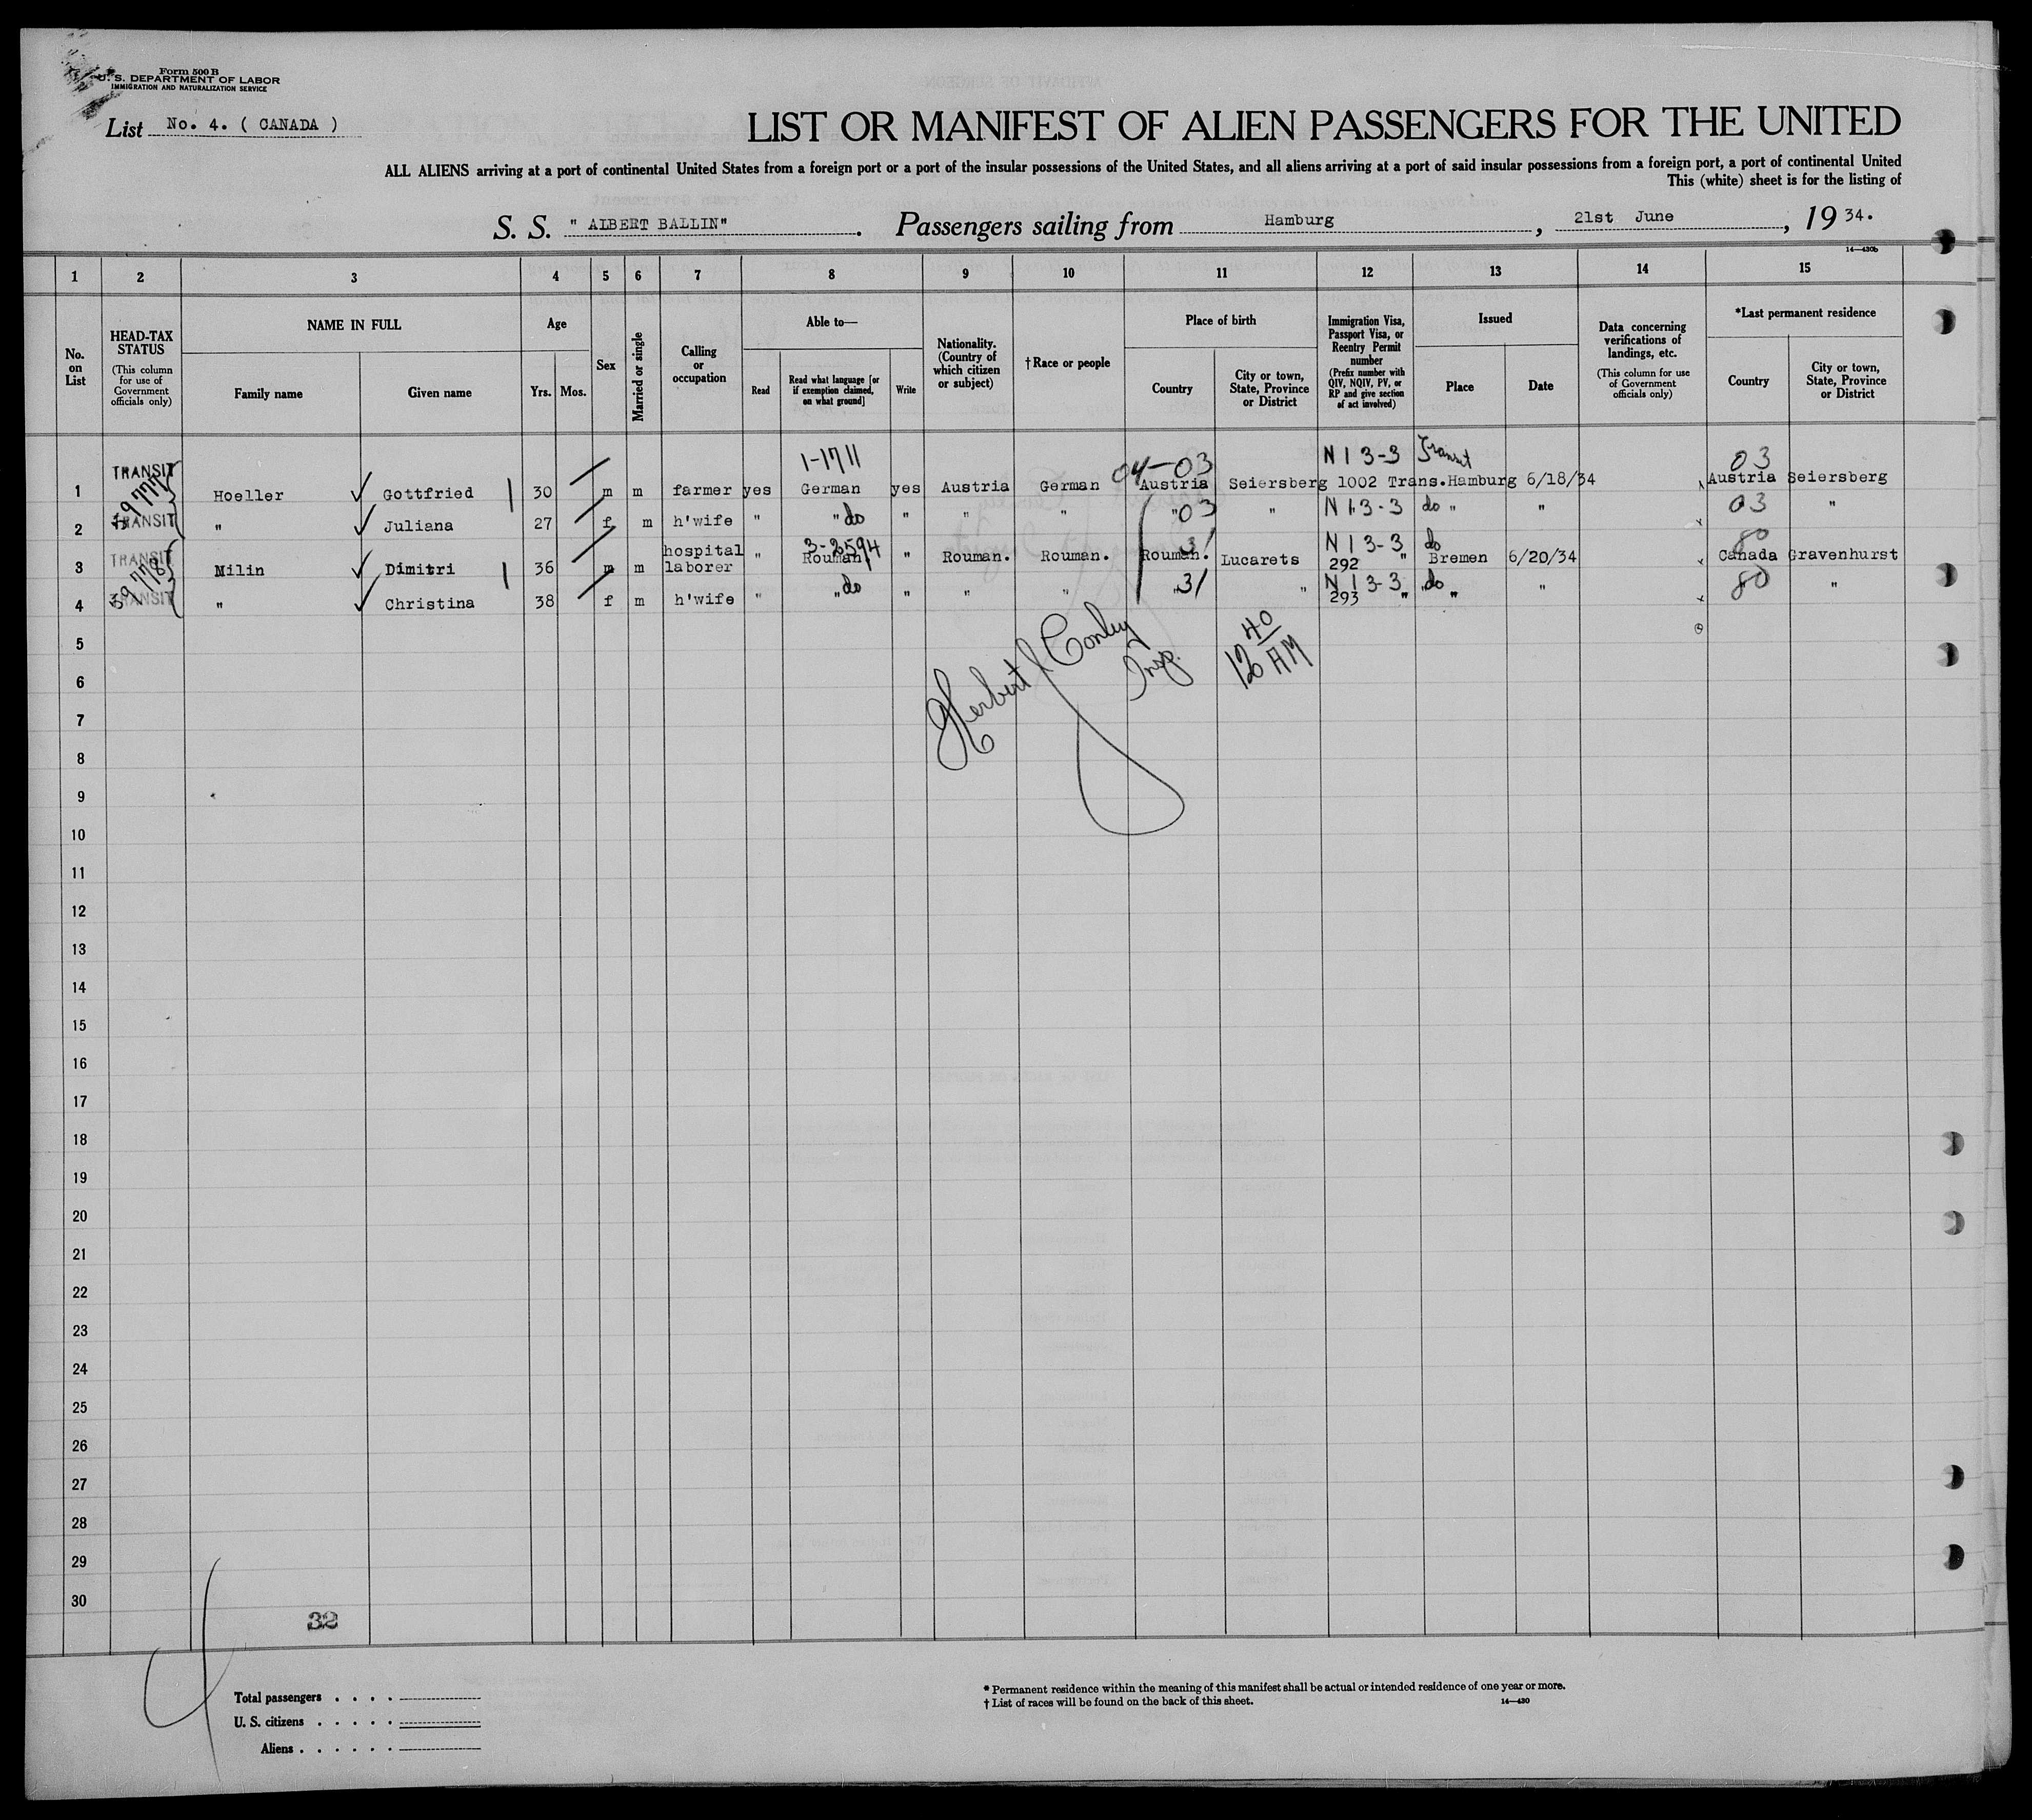 Form 500 B
U. S. DEPARTMENT OF LABOR
IMMIGRATION AND NATURALIZATION SERVICE
List No. 4. ( CANADA )
LIST OR MANIFEST OF ALIEN PASSENGERS FOR THE UNITED
ALL ALIENS arriving at a port of continental United States from a foreign port or a port of the insular possessions of the United States, and all aliens arriving at a port of said insular possessions from a foreign port, a port of continental United
This (white) sheet is for the listing of
S. S. " ALBERT BALLIN". Passengers sailing from Hamburg, 21st June, 19 34.
14—430b
1 2 3 4 5 6 7 8 9 10 11 12 13 14 15
No. on List
HEAD-TAX STATUS (This column for use of Government officials only)
NAME IN FULL
Family name
Given name
Age
Yrs. Mos.
Sex
Married or single
Calling or occupation
Able to—
Read
Read what language [or if exemption claimed, on what ground]
Write
Nationality. (Country of which citizen or subject)
† Race or people
Place of birth
Country
City or town, State, Province or District
Immigration Visa, Passport Visa, or Reentry Permit number (Prefix number with QIV, NQIV, PV, or RP and give section of act involved)
Issued
Place
Date
Data concerning verifications of landings, etc. (This column for use of Government officials only)
*Last permanent residence
Country
City or town, State, Province or District
TRANSIT 1-1711 04-03 N I 3-3 Transit 03
1 Hoeller Gottfried 30 m m farmer yes German yes Austria German Austria Seiersberg 1002 Trans. Hamburg 6/18/34 Austria Seiersberg
TRANSIT
2 " Juliana 27 f m h'wife " " do " " " " 03 " N I 3-3 do " " 03 "
TRANSIT hospital 3-2594 31 N I 3-3 do 80
3 Milin Dimitri 36 m m laborer " Rouman " Rouman. Rouman. Rouman. Lucarets 292 " Bremen 6/20/34 Canada Gravenhurst
TRANSIT
4 " Christina 38 f m h'wife " " do " " " " 31 " N I 3-3 293 " do " " 80 "
5
Herbert J Conley Insp. 12 40 AM
6
7
8
9
10
11
12
13
14
15
16
17
18
19
20
21
22
23
24
25
26
27
28
29
30
32
Total passengers . . . .
U. S. citizens . . . . .
Aliens . . . . . .
* Permanent residence within the meaning of this manifest shall be actual or intended residence of one year or more.
† List of races will be found on the back of this sheet. 14—430